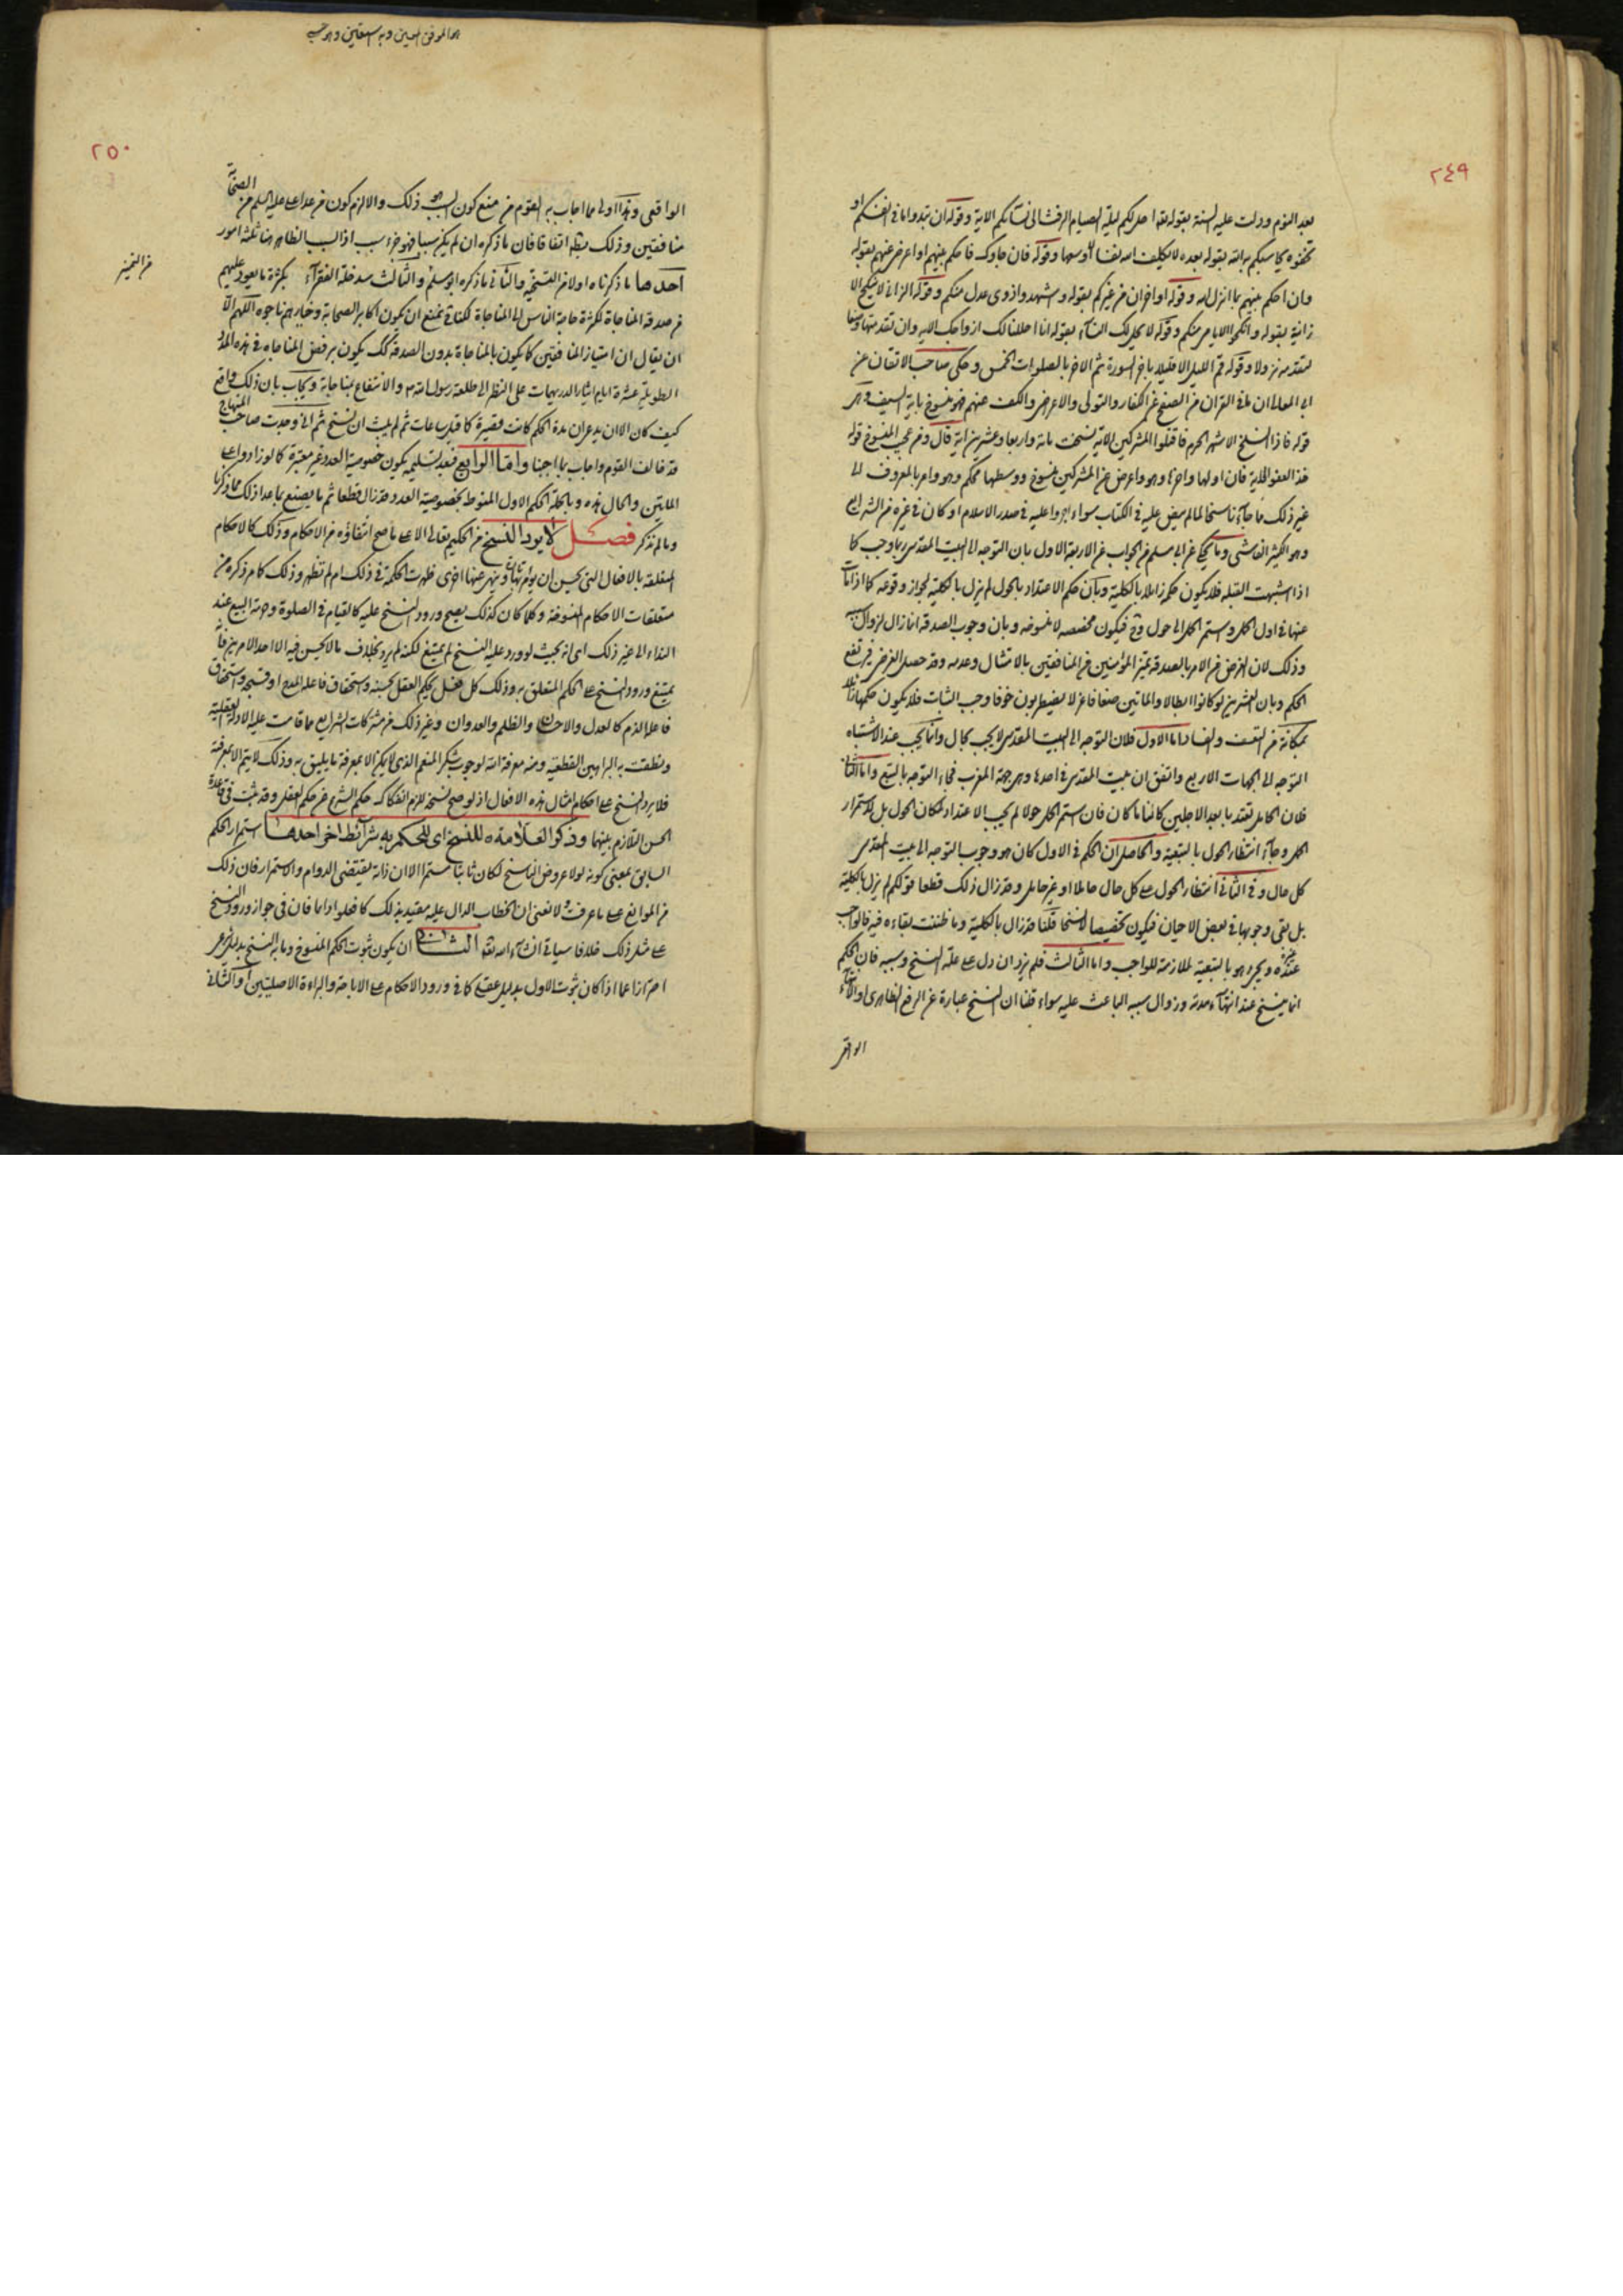 ٢٤٩
بعد النوم ودلت عليه السنة بقوله تعا احل لكم ليلة الصيام الرفث الى نسآئكم الاية وقوله ان تبدوا ما فى انفسكم او
تخفوه يحاسبكم به الله بقوله بعده لا يكلف الله نفسا الا وسعها وقوله فان جاوك فاحكم بينهم او اعرض عنهم بقوله
وان احكم بينهم بما انزل الله وقوله او اخران من غيركم بقوله واشهدوا ذوى عدل منكم وقوله الزانى لا ينكح الا
زانية بقوله وانكحوا الايامى منكم وقوله لا يحل لك النسآء بقوله انا احللنا لك ازواجك الاية وان تقدمتها وضعا
لتقدمه نزولا وقوله قم الليل الا قليلا باخر السورة ثم الاخر بالصلوات الخمس وحكى صاحب الاتقان عن
ان ما فى القران من الصفح عن الكفار والتولى والاعراض والكف عنهم فهو منسوخ باية السيف وهى
قوله فاذا انسلخ الاشهر الحرم فاقتلوا المشركين الاية نسخت مائة واربعا وعشرين اية قال ومن عجيب المنسوخ قوله
خذ العفو الاية فان اولها واخرها وهو واعرض عن المشركين منسوخ ووسطها محكم وهو وامر بالمعروف الى
غير ذلك مما جآء ناسخا لما لم ينص عليه فى الكتاب سواء عليه فى صدر الاسلام او كان فى غيره من الشرايع
وهو الكثير الفاشى وما يحكى عن ابى مسلم من الجواب عن الاربعة الاول بان التوجه الى البيت المقدس ربما وجب كما
اذا اشتبهت القبلة فلا يكون حكمه زايلا بالكلية وبان حكم الاعتداد بالحول لم يزل بالكلية لجواز وقوعه كما اذا مات
عنها فى اول الحمل واستمر الحمل الى حول وح فيكون مخصصه لا منسوخه وبان وجوب الصدقة انما زال لزوال سببه
وذلك لان الغرض من الامر بالصدقة تميز المؤمنين من المنافقين بالامتثال وعدمه وقد حصل الغرض فيرتفع
الحكم وبان العشرين لو كانوا ابطالا والمائتين ضعافا عزلا يضطربون خوفا وجب الثبات فلا يكون حكمها زائلا
بمكانة من التعسف والفساد اما الاول فلان التوجه الى البيت المقدس لا يجب بحال وانما يجب عند الاشتباه
التوجه الى الجهات الاربع واتفق ان بيت المقدس فى احدها وهى جهة المغرب فجاء التوجه بالتبع واما الثانى
فلان الحامل تعتد بابعد الاجلين كائنا ما كان فان استمر الحمل حولا لم يجب الاعتداد لمكان الحول بل لاستمرار
الحمل وجآء انتظار الحول بالتبعية والحاصل ان الحكم فى الاول كان هو وجوب التوجه الى بيت المقدس
كل حال وفى الثانى انتظار الحول على كل حال حاملا او غير حامل وقد زال ذلك قطعا قولكم لم يزل بالكلية
بل بقى وجوبها فى بعض الاحيان فيكون تخصيصا لا نسخا قلنا قد زال بالكلية وما ظننت بقاءه فيه فالواجب
عنده غيره ويجرى هو بالتبعية لملازمته للواجب واما الثالث فلم يزد ان دل على علة النسخ وسببه فان الحكم
انما ينسخ عند انتهآء مدته وزوال سببه الباعث عليه سواء قلنا ان النسخ عبارة عن الرفع الظاهرى او الانتهآء
الواقعى
هو الموفق المعين وبه
٢٥٠
الواقعى وهذا اولى مما اجاب به القوم من منع كون السبب هو ذلك والا لزم كون من عدا على عليه السلم من الصحابة
منافقين وذلك بط اتفاقا فان ما ذكره ان لم يكن سببا فهو جزء سبب اذ السبب الظاهر هنا ثلثة امور
احدها ما ذكرناه اولا من والثانى ما ذكره ابو مسلم والثالث سد خلة الفقرآء بكثرة ما يعود عليهم
من صدقة المناجاة لكثرة حاجة الناس الى المناجاة لكنا نمنع ان يكون اكابر الصحابة وخيارهم ناجوه اللهم الا
من التميز
ان يقال ان امتياز المنافقين كما يكون بالمناجاة بدون الصدقة كك يكون برفض المناجاة فى هذه المدة
الطويلة عشرة ايام ايثارا لدريهمات على النظر الى طلعة رسول الله ص والانتفاع بمناجاته ويجاب بان ذلك واقع
كيف كان الا ان يدعى ان مدة الحكم كانت قصيرة كما قيل ساعات ثم لم يلبث ان نسخ ثم انى وجدت صاحب المنهاج
قد خالف القوم واجاب بما اجبنا واما الرابع فبعد تسليمه يكون خصوصية العدد غير معتبرة كما لو زادوا على
المائتين والحال هذه وبالجملة الحكم الاول المنوط بخصوصية العدد قد زال قطعا ثم ما يصنع بما عدا ذلك مما ذكرنا
وما لم نذكر فصل لا يرد النسخ من الحكيم تعالى الا على ما صح انتفاؤه من الاحكام وذلك كالاحكام
المتعلقة بالافعال التى يحسن ان يؤمر بها تارة وينهى عنها اخرى ظهرت الحكمة فى ذلك ام لم تظهر وذلك كما مر ذكره من
متعلقات الاحكام المنسوخة وكلما كان كذلك يصح ورود النسخ عليه كالقيام فى الصلوة وحرمة البيع عند
النداء الى غير ذلك اى انه بحيث لو ورد عليه النسخ لم يمتنع لكنه لم يرد بخلاف ما لا يحسن فيه الا احد الامرين فانه
يمتنع ورود النسخ على الحكم المتعلق به وذلك كل فعل يحكم العقل بحسنه واستحقاق فاعله المدح او قبحه واستحقاق
فاعله الذم كالعدل والاحسان والظلم والعدوان وغير ذلك من مشتركات الشرايع مما قامت عليه الادلة العقلية
ونطقت به البراهين القطعية ومنه معرفة الله لوجوب شكر المنعم الذى لا يمكن الا بمعرفة ما يليق به وذلك لا يتم الا بمعرفته
فلا يرد النسخ على احكام امثال هذه الافعال اذ لو صح نسخه للزم انفكاك حكم الشرع عن حكم العقل وقد ثبت فى قاعدة
الحسن التلازم بينهما وذكر العلامة ره للنسخ اى للحكم به شرائط اخر احدها استمرار الحكم
السابق بمعنى كونه لولا عروض الناسخ لكان ثابتا مستمرا الا ان ذاته يقتضى الدوام والاستمرار فان ذلك
من الموانع على ما عرفت ولا نعنى ان الخطاب الدال عليه مقيد بذلك كما فعلوا دائما فان فى جواز ورود النسخ
على مثل ذلك خلافا سياتى انشآء الله تعا الثانى ان يكون ثبوت الحكم المنسوخ وما به النسخ بدليل شرعى
احترازا عما اذا كان ثبوت الاول بدليل عقلى كما فى ورود الاحكام على الاباحة والبراءة الاصليتين او الثانى